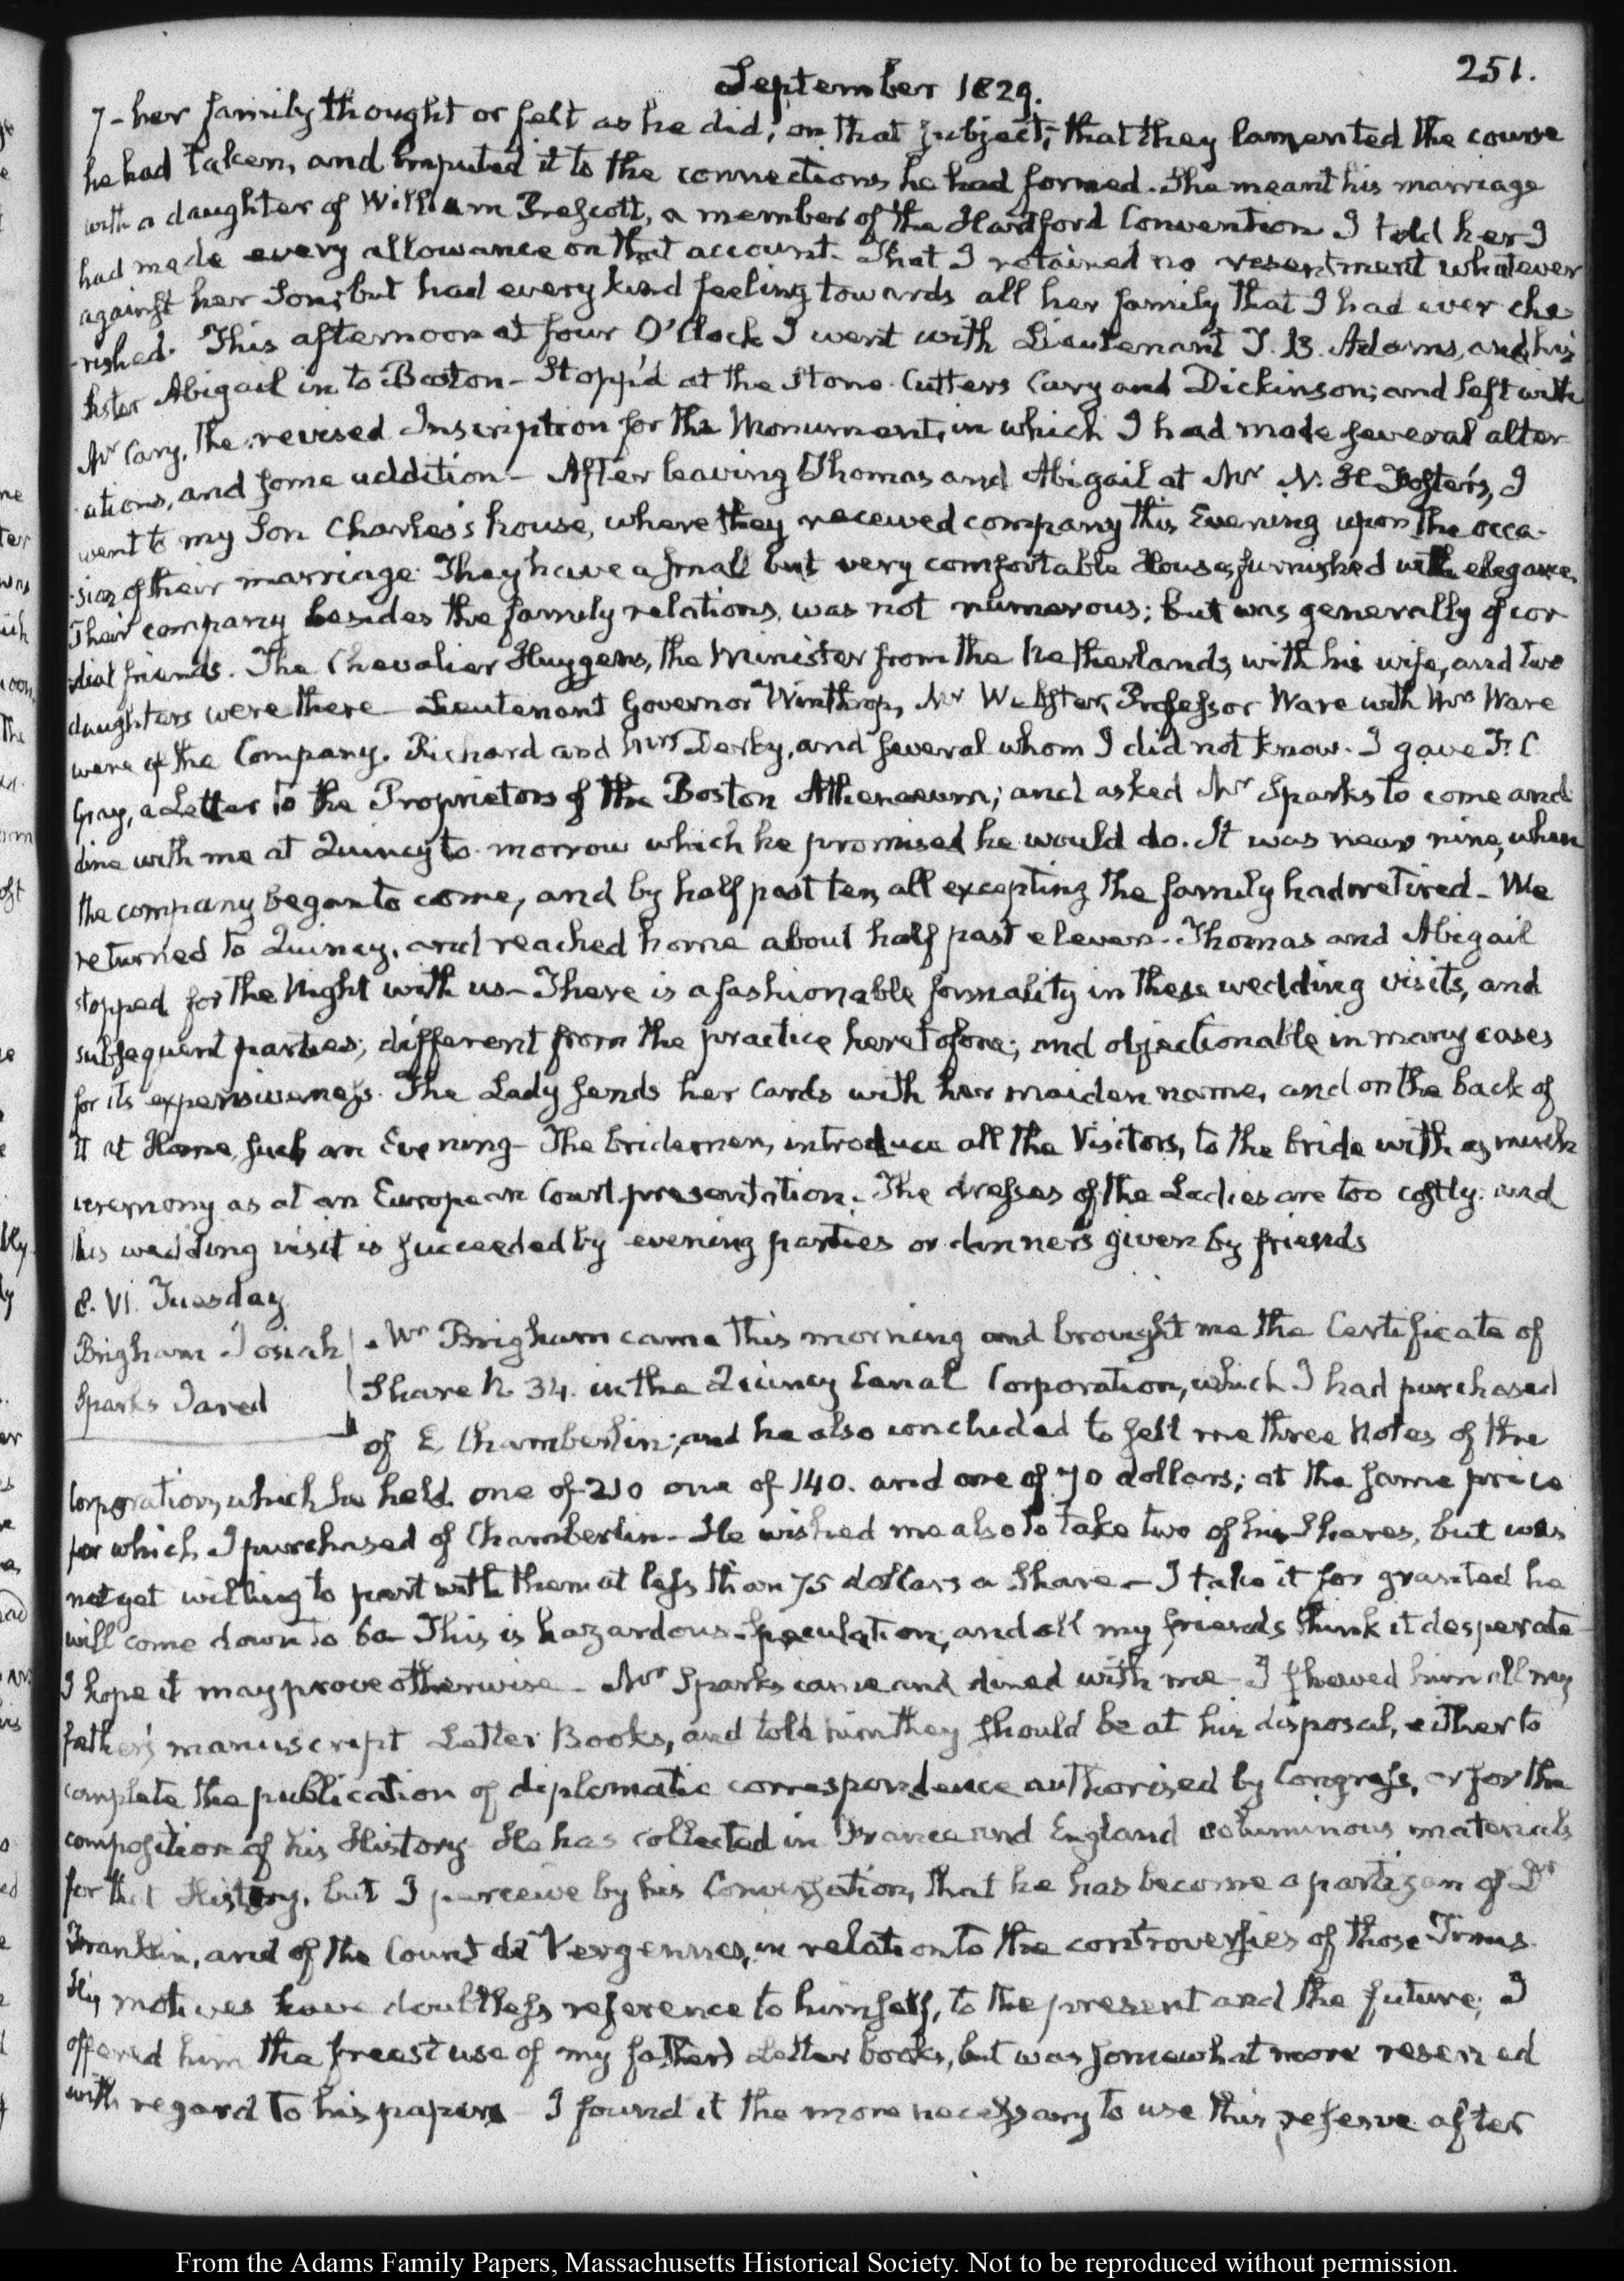 251.
September 1829.
7 - her family thought or felt as he did, on that subject; that they lamented the course
he had taken, and imputed it to the connections he had formed. She meant his marriage
with a daughter of William Prescott, a member of the Hartford Convention I told her I
had made every allowance on that account. That I retained no resentment whatever
against her Son; but had every kind feeling towards all her family that I had ever che
-rished. This afternoon at four O'Clock I went with Lieutenant T. B. Adams, and his
Sister Abigail in to Boston - Stopp'd at the Stone-Cutters Cary and Dickinson; and left with
Mr Cary, the revised Inscription for the Monument, in which I had made several alter
-ations, and some addition - After leaving Thomas and Abigail at Mr N. H. Foster's, I
went to my Son Charles's house, where they received company this Evening upon the occa-
-sion of their marriage. They have a small but very comfortable House, furnished with elegance.
Their company besides the family relations, was not numerous; but was generally of cor
-dial friends. The Chevalier Huygens, the Minister from the Netherlands, with his wife, and two
daughters were there - Lieutenant Governor Winthrop, Mr Webster, Professor Ware with Mrs Ware
were of the Company. Richard and Mrs Derby, and several whom I did not know. I gave F. C
Gray, a Letter to the Proprietors of the Boston Athenaeum; and asked Mr Sparks to come and
dine with me at Quincy to-morrow which he promised he would do. It was near nine, when
the company began to come, and by half past ten, all excepting the family had retired - We
returned to Quincy, and reached home about half past eleven - Thomas and Abigail
stopped for the Night with us - There is a fashionable formality in these wedding visits, and
subsequent parties; different from the practice heretofore; and objectionable in many cases
for its expensiveness. The Lady sends her Cards with her maiden name, and on the back of
it at Home, such an Evening - The bridemen, introduce all the Visitors, to the bride with as much
ceremony as at an European Court presentation. The dresses of the Ladies are too costly. and
this wedding visit is succeeded by evening parties or dinners given by friends
8. VI. Tuesday
Brigham Josiah
Sparks Jared
Mr Brigham came this morning and brought me the Certificate of
Share N. 34. in the Quincy Canal Corporation, which I had purchased
of E. Chamberlin; and he also concluded to sell me three Notes of the
Corporation, which he held. one of 210 one of 140. and one of 70 dollars; at the same price
for which I purchased of Chamberlin - He wished me also to take two of his Shares, but was
not yet willing to part with them at less than 75 dollars a Share - I take it for granted he
will come down to 60 - This is hazardous Speculation, and all my friends think it desperate -
I hope it may prove otherwise - Mr Sparks came and dined with me - I shewed him all my
father's manuscript Letter Books, and told him they should be at his disposal, either to
complete the publication of diplomatic correspondence authorised by Congress, or for the
composition of his History. He has collected in France and England voluminous materials
for that History, but I perceive by his Conversation, that he has become a partizan of Dr
Franklin, and of the Count de Vergennes, in relation to the controversies of those Times.
His motives have doubtless reference to himself, to the present and the future; I
offered him the freest use of my father's Letter books, but was somewhat more reserved
with regard to his papers - I found it the more necessary to use this reserve after
From the Adams Family Papers, Massachusetts Historical Society. Not to be reproduced without permission.